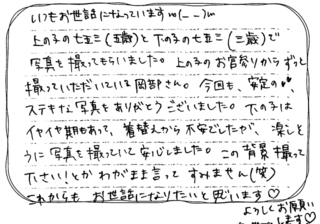 いつもお世話になっていますm(_ _)m
上の子の七五三(五歳)と下の子の七五三(三歳)で
写真を撮ってもらいました。上の子のお宮参りからずっと
撮っていただいている岡部さん。今回も、安定の
ステキな写真をありがとうございました。下の子は
イヤイヤ期もあって、着替えから不安でしたが、楽しそ
うに写真を撮っていて安心しました。この背景撮って
下さい!とかわがまま言ってすみません(笑)
これからも お世話になりたいと思います♡
よろしくお願い
します♡